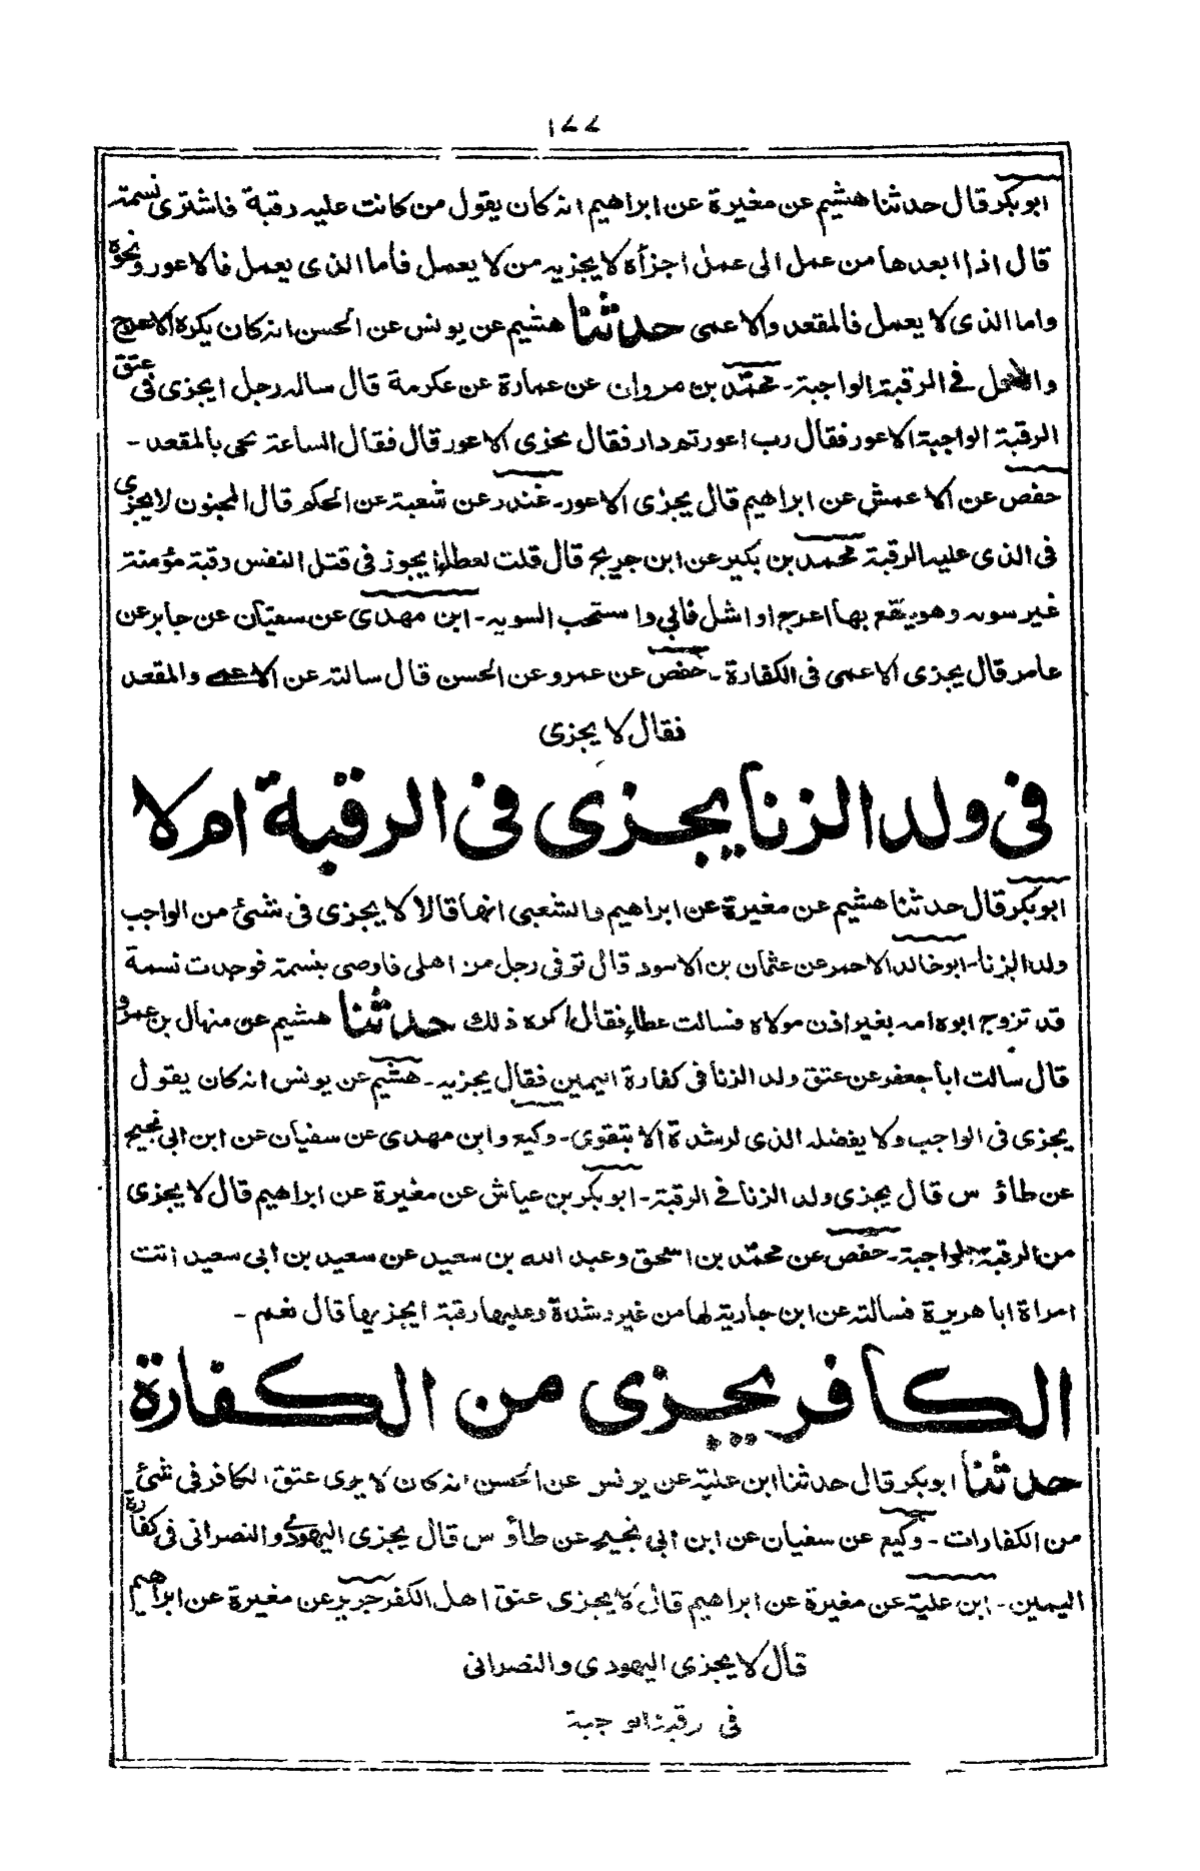 ١٧٧
ابوبكر قال حدثنا هشيم عن مغيرة عن ابراهيم انه كان يقول من كانت عليه رقبة فاشترى نسمة
قال اذا ابعدها من عمل الى عمل اجزأه لا يجزيه من لا يعمل فأما الذى يعمل فالاعور ونحوه
واما الذى لا يعمل فالمقعد والاعمى حدثنا هشيم عن يونس عن الحسن انه كان يكره الاعرج
في الرقبة الواجبة - محمّد بن مروان عن عمارة عن عكرمة قال ساله رجل ايجزى فى عتق
الرقبة الواجبة الاعور فقال رب اعور تم دار فقال يجزى الاعور قال فقال الساعة تجى بالمقعد -
حفص عن الاعمش عن ابراهيم قال يجزى الاعور - غندر عن شعبة عن الحكم قال المجنون لا يجزى
فى الذى عليه الرقبة محمد بن بكير عن ابن جريج قال قلت لعطاء ايجوز فى قتل النفس رقبة مؤمنة
غير سويه وهو ينقع بها اعرج او اشل فابي واستحب السويه - ابن مهدى عن سفيان عن جابر عن
عامر قال يجزى الاعمى فى الكفارة - حفص عن عمرو عن الحسن قال سالته عن الاعمى والمقعد
فقال لا يجزى
فى ولد الزنا يجزى فى الرقبة ام لا
ابوبكر قال حدثنا هشيم عن مغيرة عن ابراهيم والشعبى انهما قالا لا يجزى فى شئ من الواجب
ولد الزنا - ابوخالد الاحمر عن عثمان بن الاسود قال توفى رجل من اهلى فاوصى بنسمة فوجدت نسمة
قد تزوج ابوه امه بغير اذن مولاه فسالت عطاء فقال اكره ذلك حدثنا هشيم عن منهال بن عمرو
قال سالت ابا جعفر عن عتق ولد الزنا فى كفارة اليمين فقال يجزيه - هشيم عن يونس انه كان يقول
يجزى فى الواجب ولا يفضله الذى لرشدة الا بتقوى - وكيع وابن مهدى عن سفيان عن ابن ابى نجيح
عن طاؤس قال يجزى ولد الزنا فى الرقبة - ابوبكر بن عياش عن مغيرة عن ابراهيم قال لا يجزى
من الرقبة الواجبة - حفص عن محمّد بن اسحق وعبد الله بن سعيد عن سعيد بن ابى سعيد اتت
امراة ابا هريرة فسالته عن ابن جارية لها من غير رشدة وعليها رقبة ايجزيها قال نعم -
الكافر يجزى من الكفارة
حدثنا ابوبكر قال حدثنا ابن علية عن يونس عن الحسن انه كان لا يرى عتق الكافر فى شئ
من الكفارات - وكيع عن سفيان عن ابن ابي نجيح عن طاؤس قال يجزى اليهودي والنصرانى فى كفارة
اليمين - ابن علية عن مغيرة عن ابراهيم قال لا يجزى عتق اهل الكفر جرير عن مغيرة عن ابراهيم
قال لا يجزى اليهودى والنصرانى
فى رقبة الواجبة